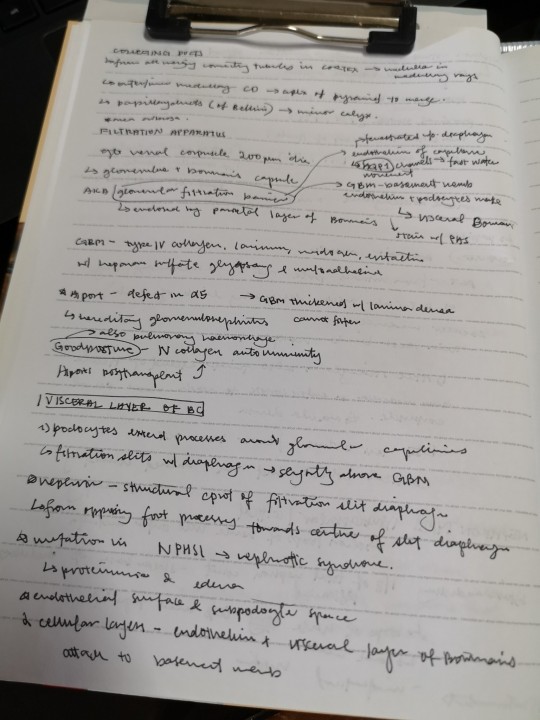 COLLECTING DUCTS
tubules in CORTEX → medulla in medullary rays
↳ medullary CD → apex of pyramid to merge.
↳ papillary ducts (of Bellini) → minor calyx.
area cribrosa.
FILTRATION APPARATUS
renal corpuscle 200μm dia.
fenestrated w/o diaphragm
endothelium of capillaries
↳ glomerulus + Bowman's capsule
↳ AQP1 channels → fast water movement
AKA glomerular filtration barrier
GBM - basement memb
endothelium + podocytes make
↳ enclosed by parietal layer of Bowmans
↳ visceral Bowman
↓ stain w/ PAS
GBM - type IV collagen, laminin, nidogen, entactin
w/ heparan sulfate & 
* Alport - defect in α5 → GBM thickened w/ lamina densa
↳ hereditary glomerulonephritis cannot filter
→ also pulmonary haemorrhage
Goodpasture - IV collagen autoimmunity
Alports post transplant ↑
VISCERAL LAYER OF BC
podocytes extend processes around glomerular capillaries
↳ filtration slits w/ diaphragm → slightly above GBM
nephrin - structural cpnt of filtration slit diaphragm
↳ from opposing foot processes towards centre of slit diaphragm
mutation in NPHS1 → nephrotic syndrome.
↳ proteinuria & edema
endothelial surface & subpodocyte space
2 cellular layers - endothelium + visceral layer of Bowmans
attach to basement memb